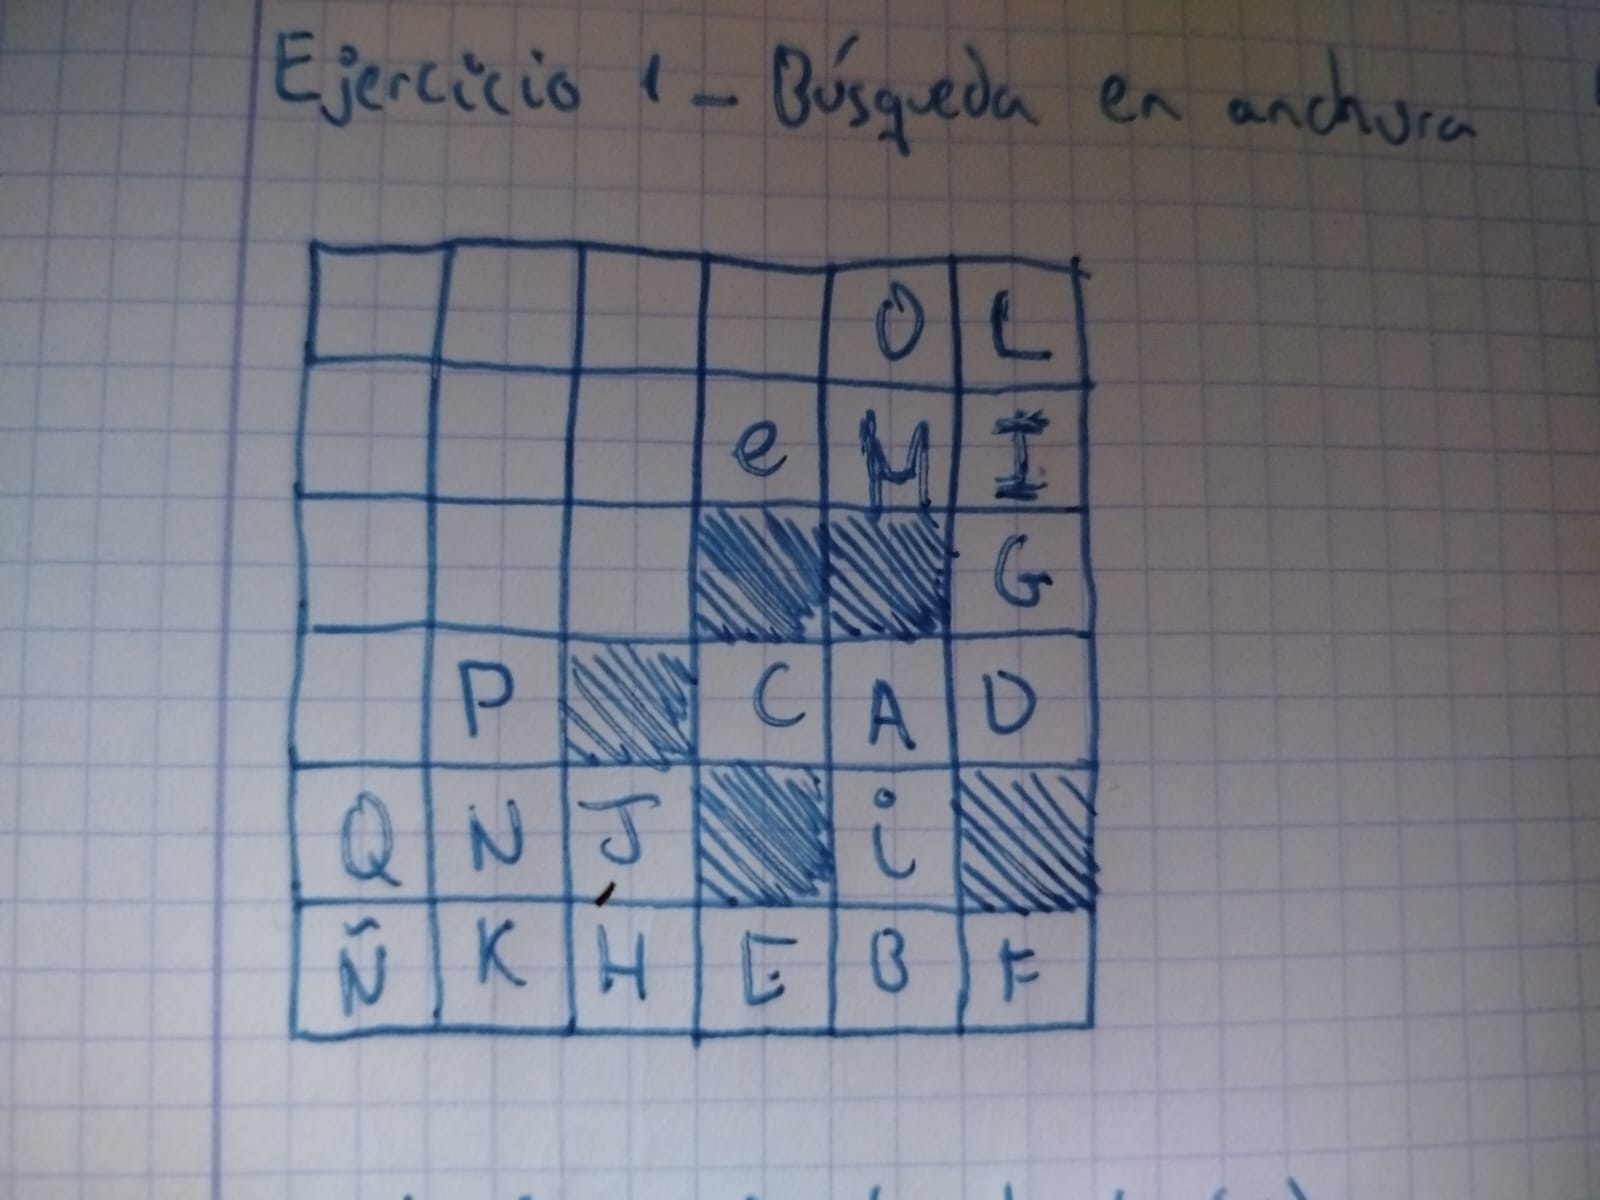 Ejercicio 1 - Búsqueda en anchura
O L
e M I
G
P C A D
Q N J i
Ñ K H E B F